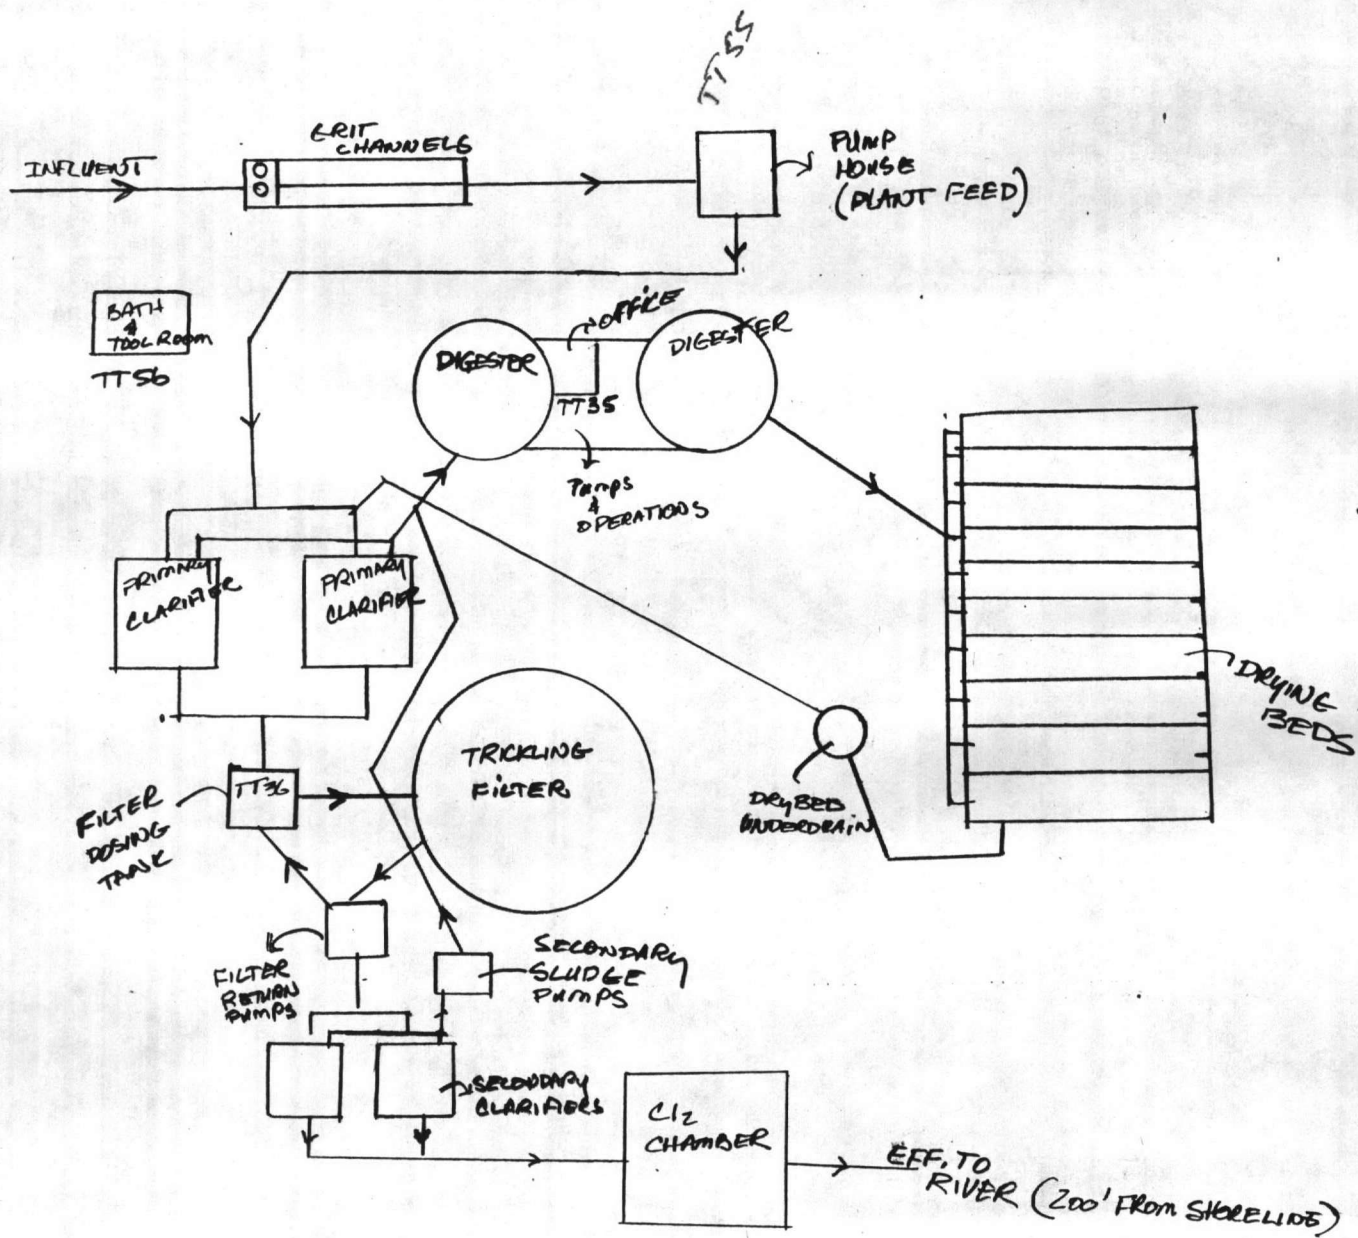 TT55
GRIT
CHANNELS
INFLUENT
PUMP
HOUSE
(PLANT FEED)
BATH
&
TOOL ROOM
TT56
OFFICE
DIGESTER
DIGESTER
TT35
PUMPS
&
OPERATIONS
PRIMARY
CLARIFIER
PRIMARY
CLARIFIER
DRYING
BEDS
TRICKLING
FILTER
TT36
FILTER
DOSING
TANK
DRYBED
UNDERDRAIN
FILTER
RETURN
PUMPS
SECONDARY
SLUDGE
PUMPS
SECONDARY
CLARIFIERS
Cl2
CHAMBER
EFF. TO
RIVER (200' FROM SHORELINE)